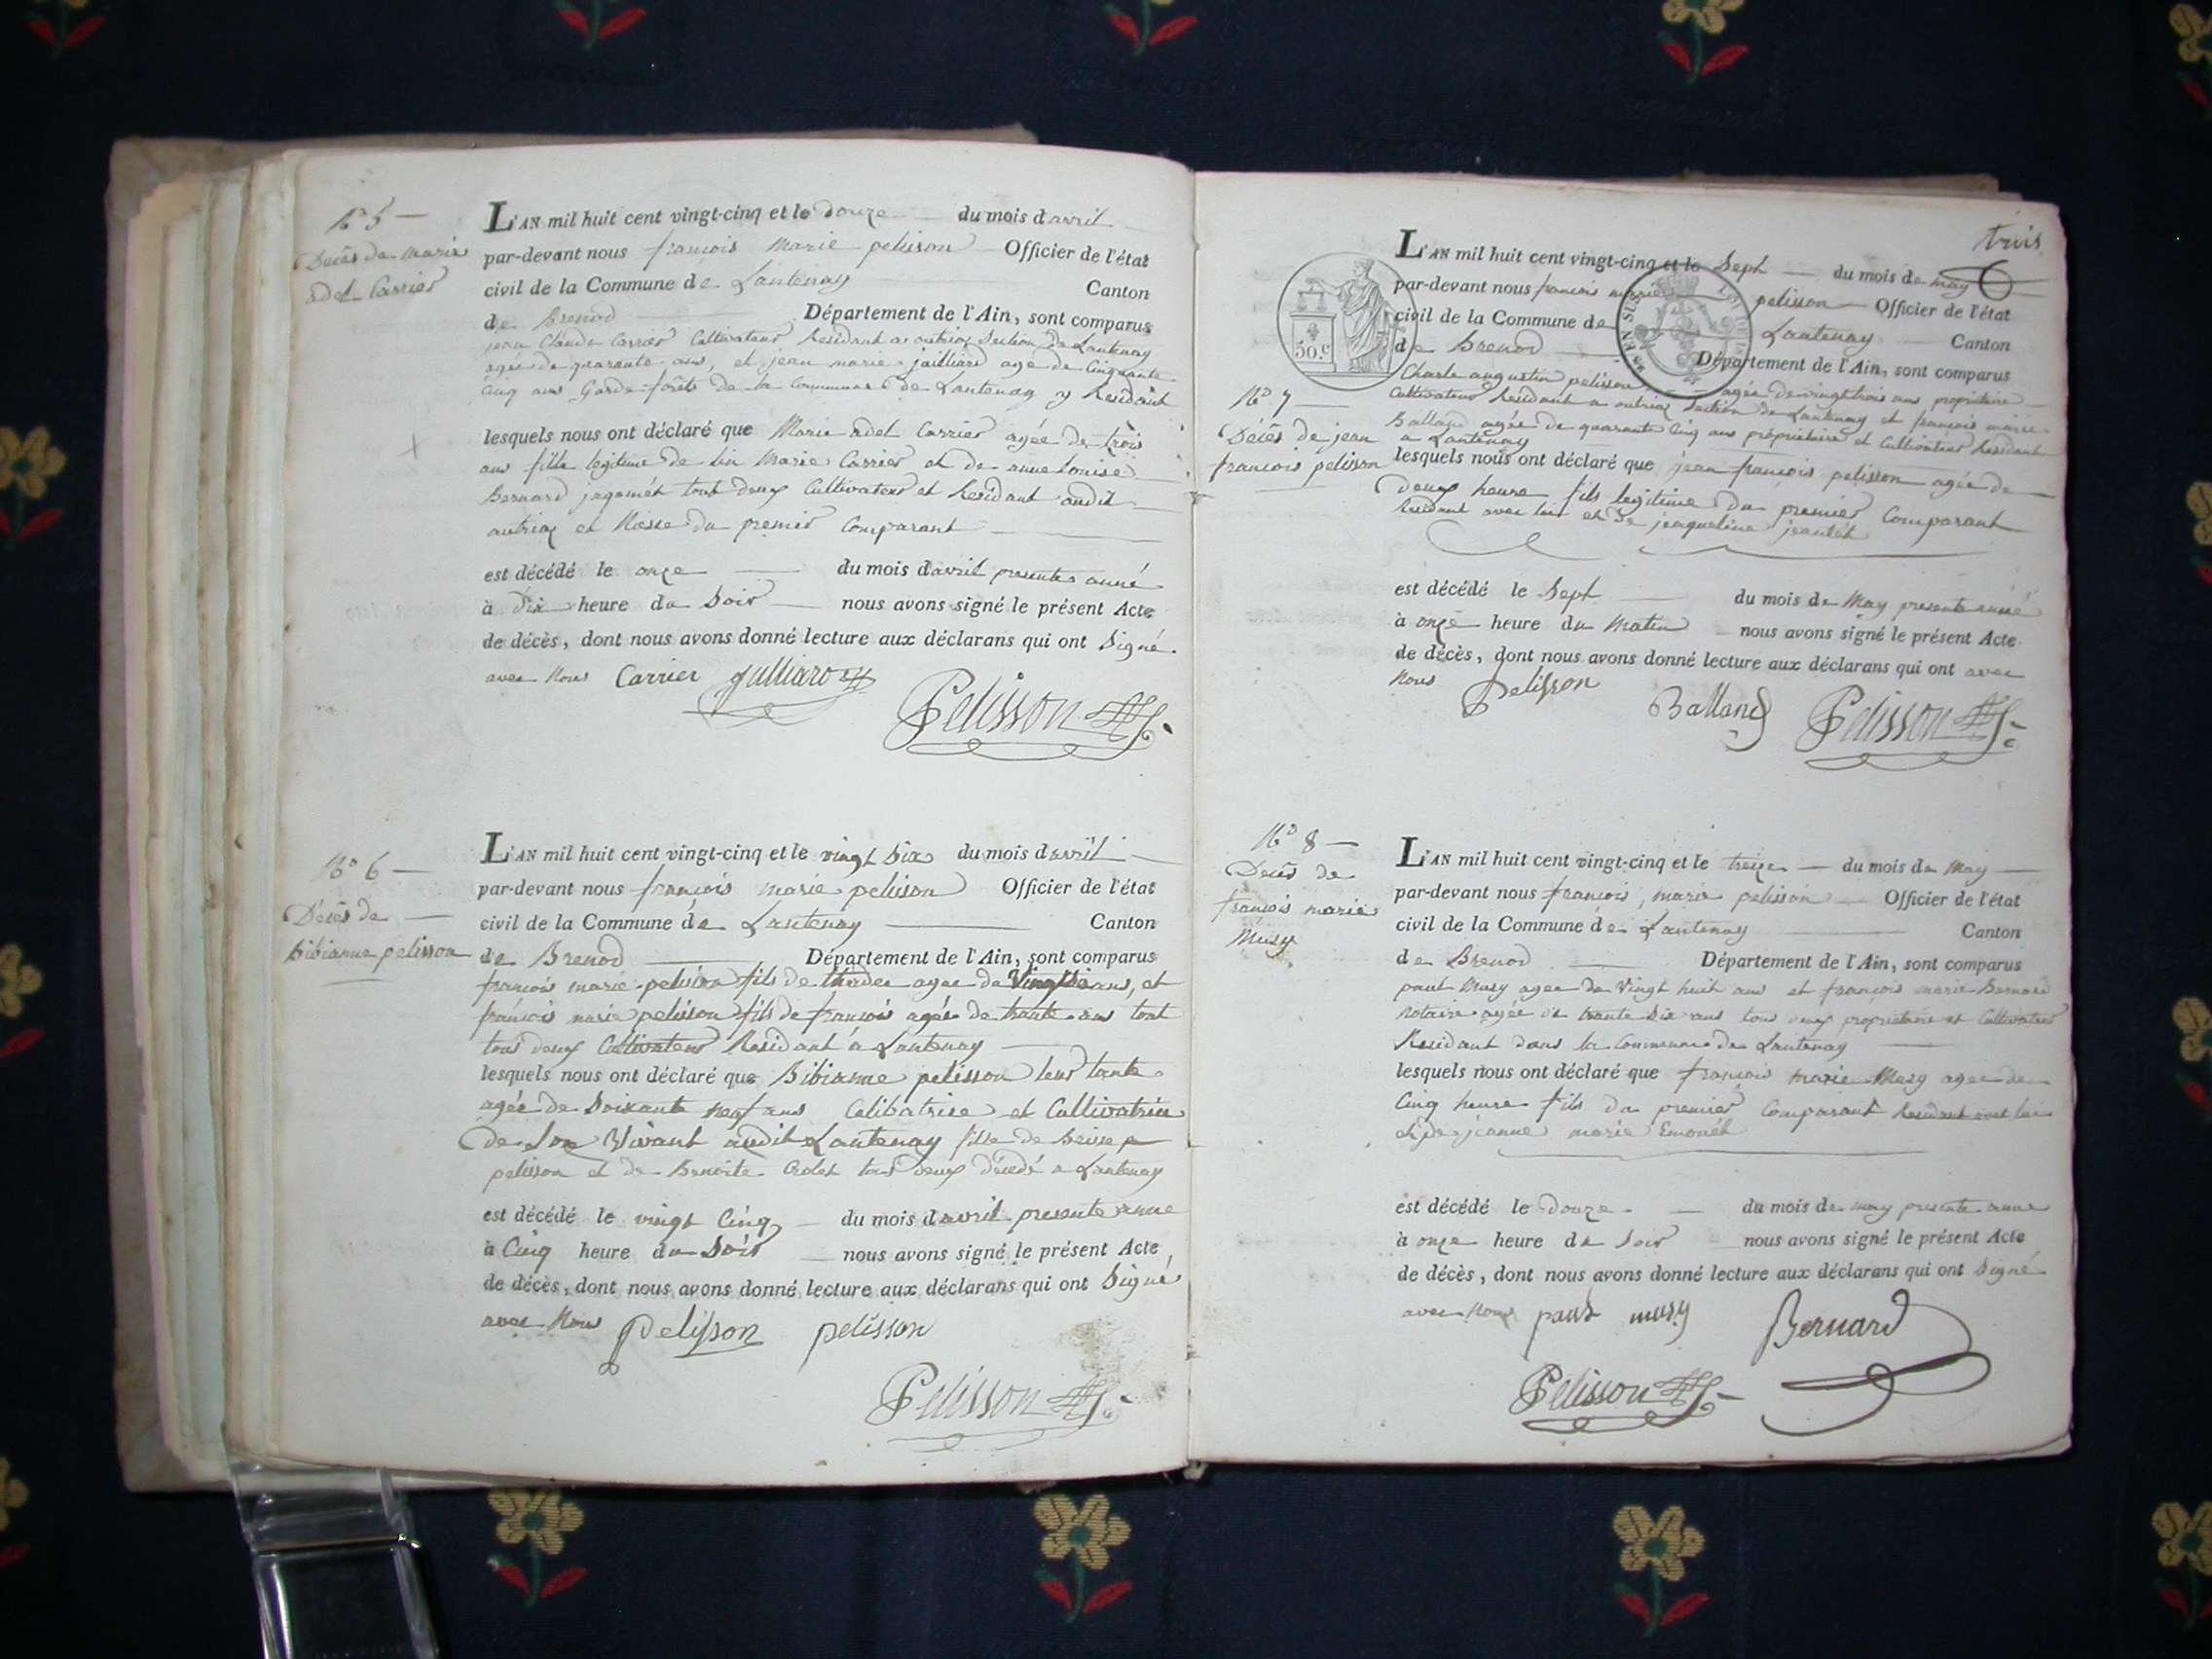 N° 5
Décès de Marie
adel Carrier
L'AN mil huit cent vingt-cinq et le douze du mois d'avril
par-devant nous françois marie pelisson Officier de l'état
civil de la Commune de Lantenay Canton
de Brenod Département de l'Ain, sont comparus
jean Claude Carrier Cultivateur Residant a outriaz Section de Lantenay
agée de quarante ans, et jean marie juilliard age de Cinquante
Cinq ans Garde-forêts de la Commune de Lantenay y Residant
lesquels nous ont déclaré que Marie adel Carrier agée de trois
ans fille legitime de Marie Carrier et de anne Louise
Bernard tout deux Cultivateur et Residant audit
outriaz et Niesse du premier Comparant
est décédé le onze du mois d'avril presente anné
à dix heure du Soir nous avons signé le présent Acte
de décès, dont nous avons donné lecture aux déclarans qui ont Signé
avec Nous Carrier juilliard
Pelisson
N° 6
Décès de
Bibianne pelisson
L'AN mil huit cent vingt-cinq et le vingt Six du mois d'avril
par-devant nous françois marie pelisson Officier de l'état
civil de la Commune de Lantenay Canton
de Brenod Département de l'Ain, sont comparus
françois marie pelisson fils de agée de ans, et
françois marie pelisson fils de françois agée de trante ans tout
tous deux Cultivateur Residant a Lantenay
lesquels nous ont déclaré que Bibianne pelisson leur tante
agée de Soixante neuf ans Celibatrice et Cultivatrice
de Son Vivant audit Lantenay fille de
pelisson et de Benoite tous deux décédé a Lantenay
est décédé le vingt Cinq du mois d'avril presente anne
à Cinq heure du Soir nous avons signé le présent Acte
de décès, dont nous avons donné lecture aux déclarans qui ont Signé
avec Nous Pelisson pelisson
Pelisson
trois
50.c
N° 7
Décès de jean
françois pelisson
L'AN mil huit cent vingt-cinq et le Sept du mois de may
par-devant nous françois marie pelisson Officier de l'état
civil de la Commune de Lantenay Canton
de Brenod Département de l'Ain, sont comparus
Charle augustin pelisson agée de vingt trois ans propriétaire
Cultivateur Residant a outriaz Section de Lantenay et françois marie
Balland agée de quarante Cinq ans propriétaire et Cultivateur Residant
a Lantenay
lesquels nous ont déclaré que jean françois pelisson agée de
deux heure fils legitime du premier Comparant
Residant avec lui et de jeaqueline
est décédé le Sept du mois de May presente anné
à onze heure du Matin nous avons signé le présent Acte
de décès, dont nous avons donné lecture aux déclarans qui ont avec
Nous Pelisson Balland Pelisson
N° 8
Décès de
françois marie
Musy
L'AN mil huit cent vingt-cinq et le treize du mois de May
par-devant nous françois, marie pelisson Officier de l'état
civil de la Commune de Lantenay Canton
de Brenod Département de l'Ain, sont comparus
paul Musy agee de Vingt huit ans et françois marie Bernard
Notaire agée de trante Six ans tous deux propriétaire et Cultivateur
Residant dans la Commune de Lantenay
lesquels nous ont déclaré que françois marie Musy agee de
Cinq heure fils du premier Comparant Residant avec lui
et de jeanne marie Emonét
est décédé le douze du mois de may presente anne
à onze heure du Soir nous avons signé le présent Acte
de décès, dont nous avons donné lecture aux déclarans qui ont Signé
avec Nous paul musy Bernard
Pelisson